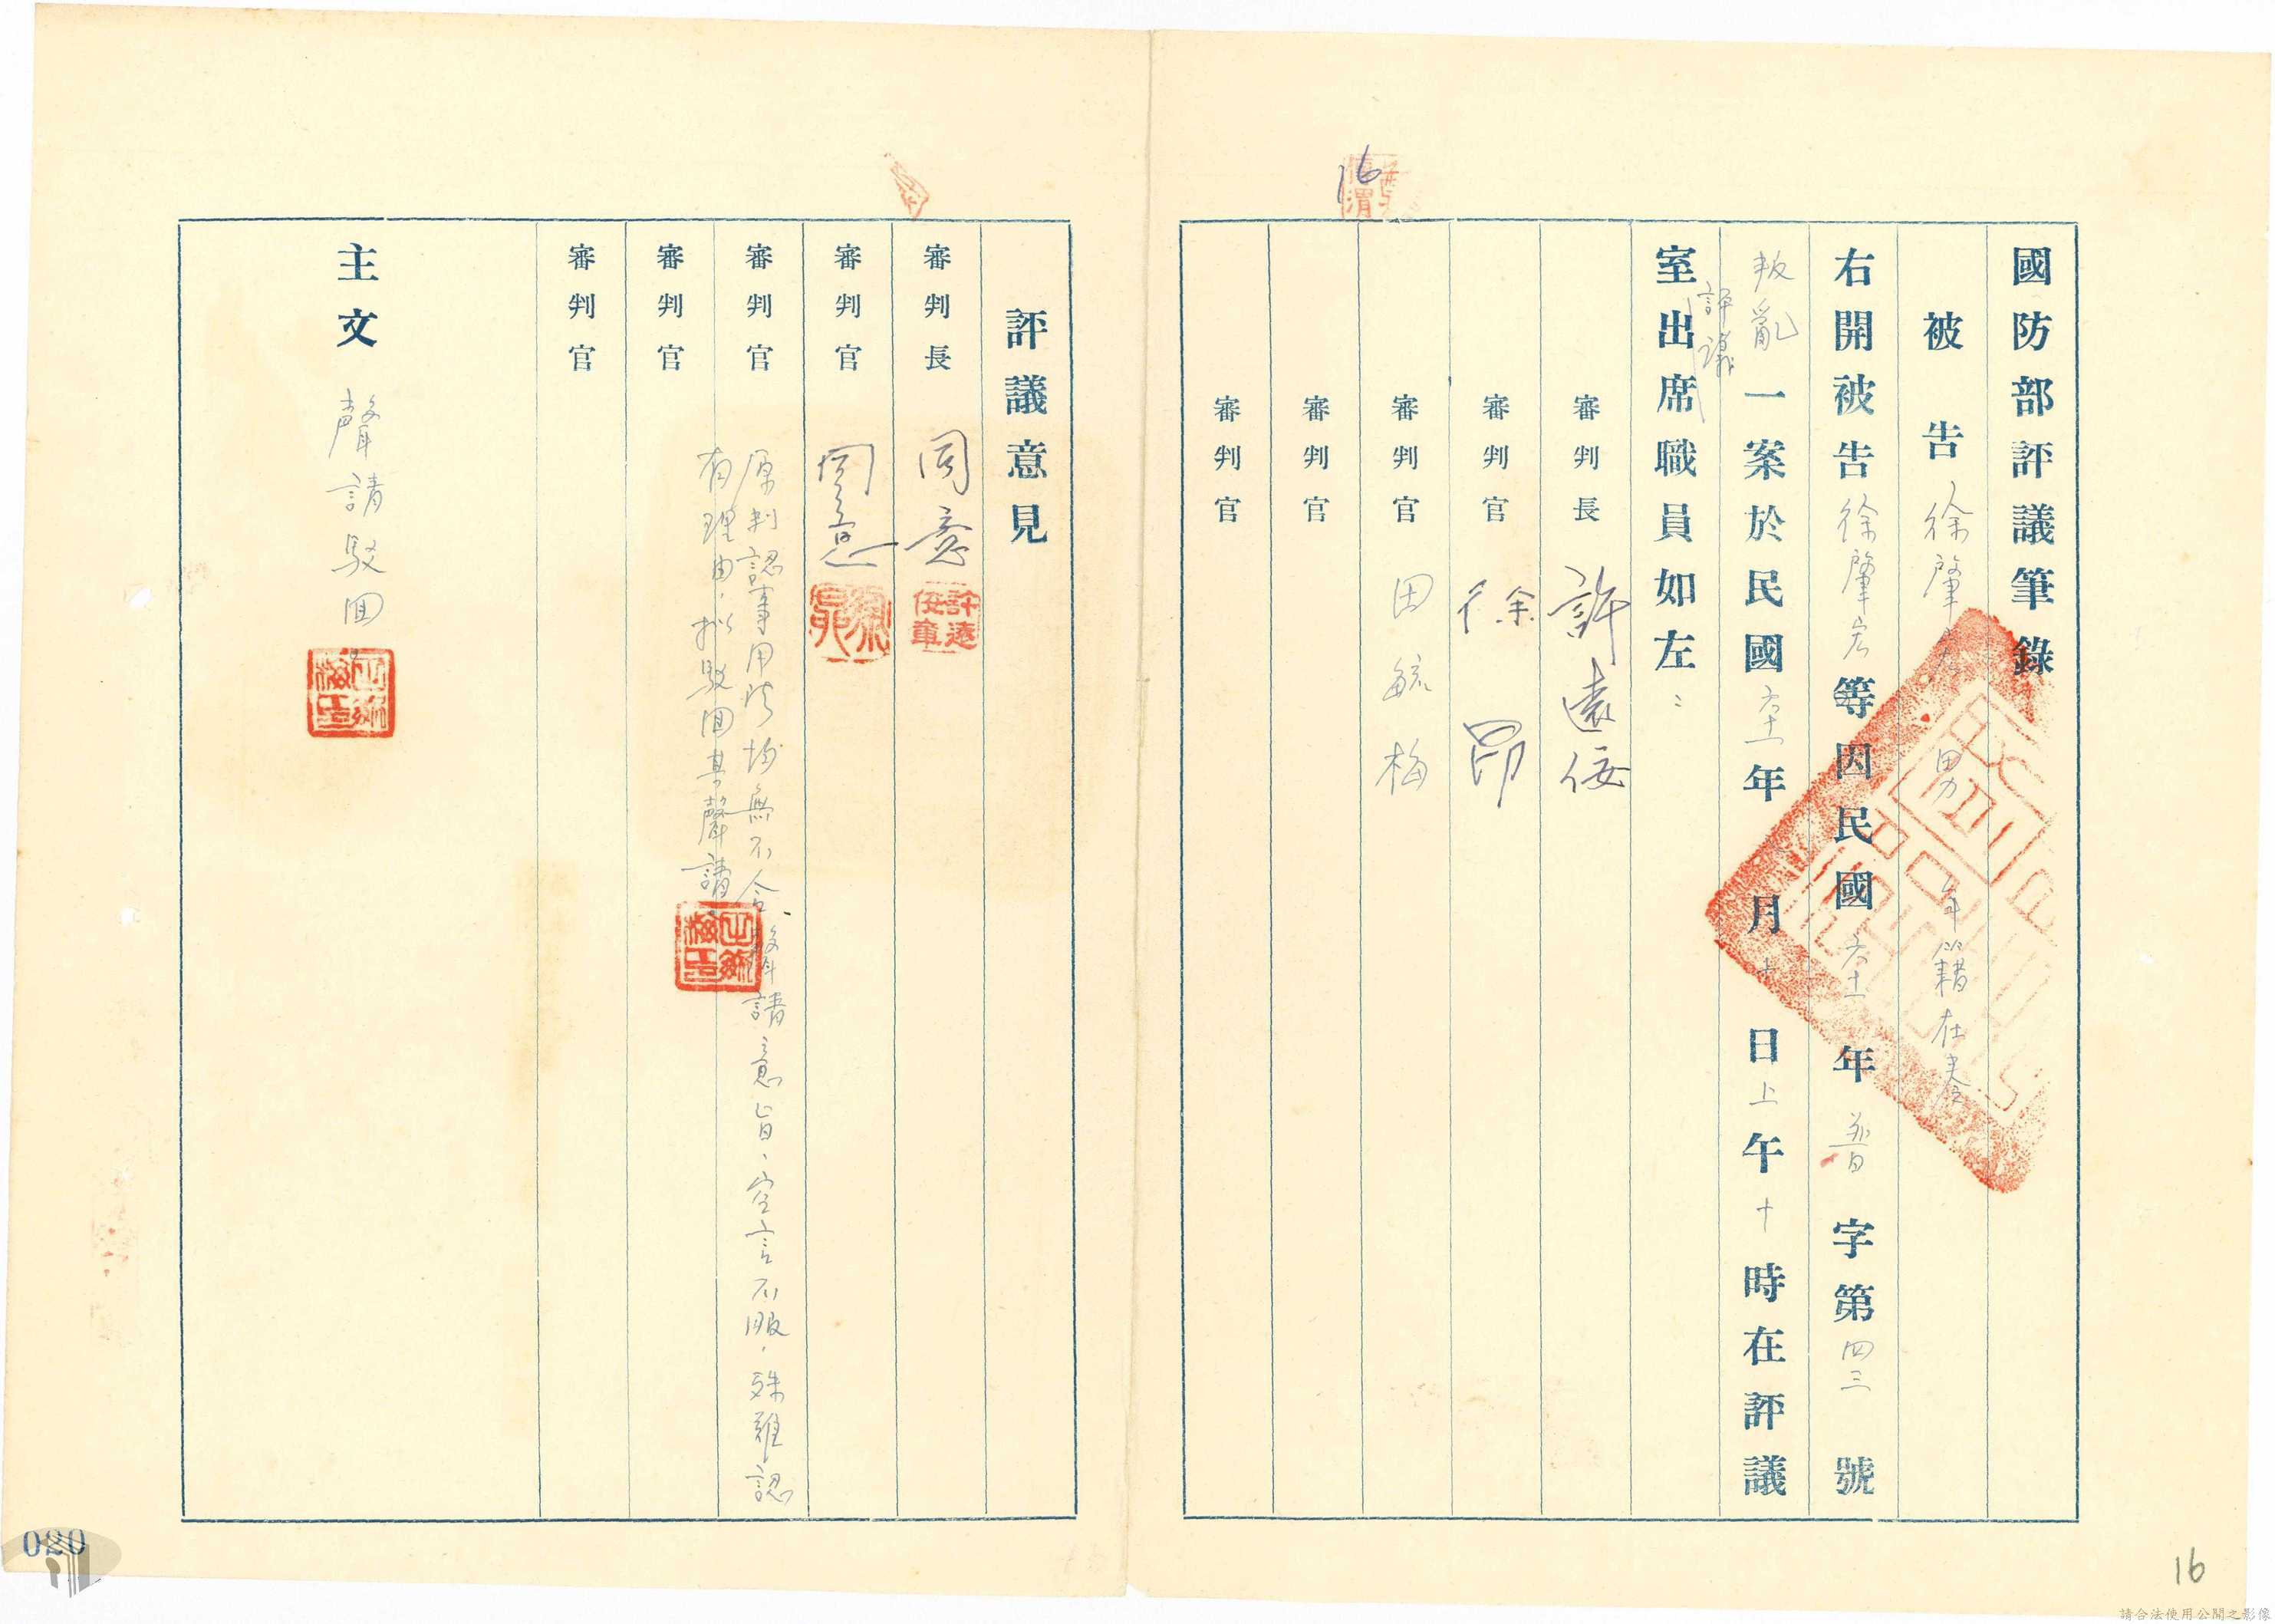 國防部評議筆錄
被告 徐肇宏 男 年籍在卷
右開被告徐肇宏等因民國六十一年普字第四三號
叛亂一案於民國六十一年 月十日上午十時在評議
評議
室出席職員如左:
審判長 許遠佞
審判官 徐昂
審判官 田毓梅
審判官
審判官
16
評議意見
審判長 同意
許遠佞章
審判官 同意
審判官 原判認事用法均無不合、聲請意旨、空言不服,殊難認
有理由,拟駁回其聲請。
審判官
審判官
主文 聲請駁回。
020
16
請合法使用公開之影像